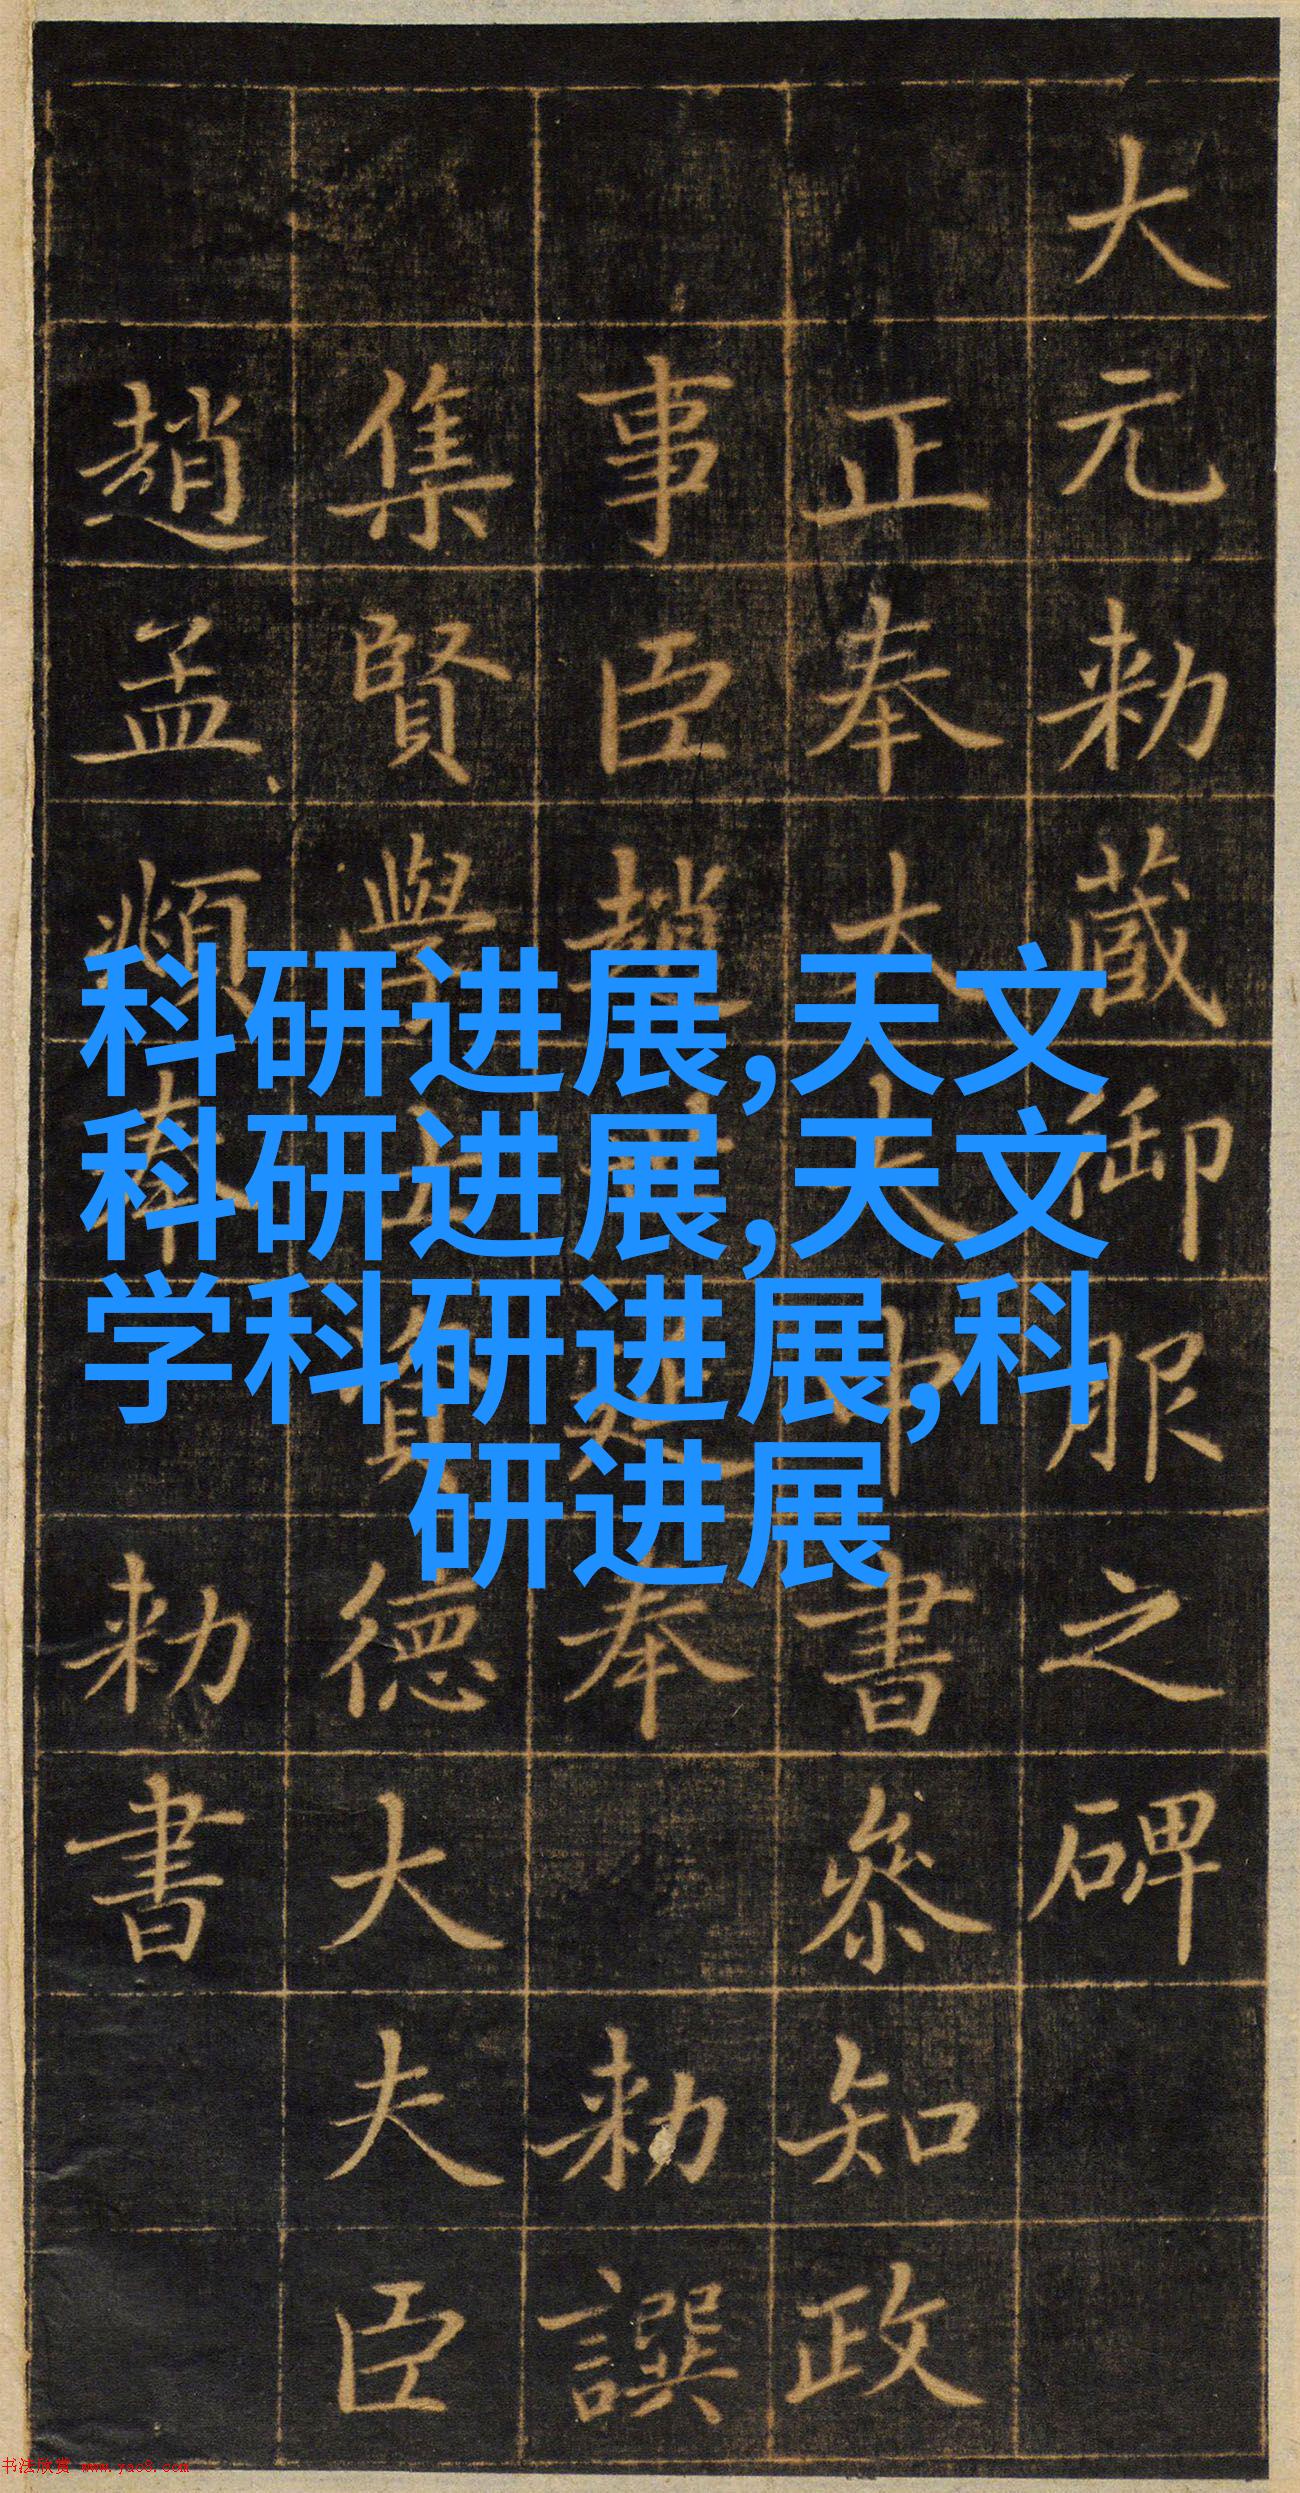 大元勅藏御服之碑
正奉大夫中書叅知政
事臣趙世延奉勅譔
集賢學士資德大夫臣
趙孟頫奉勅書
科研进展,天文
科研进展,天文
学科研进展,科
研进展
书法欣赏 www.yac8.com